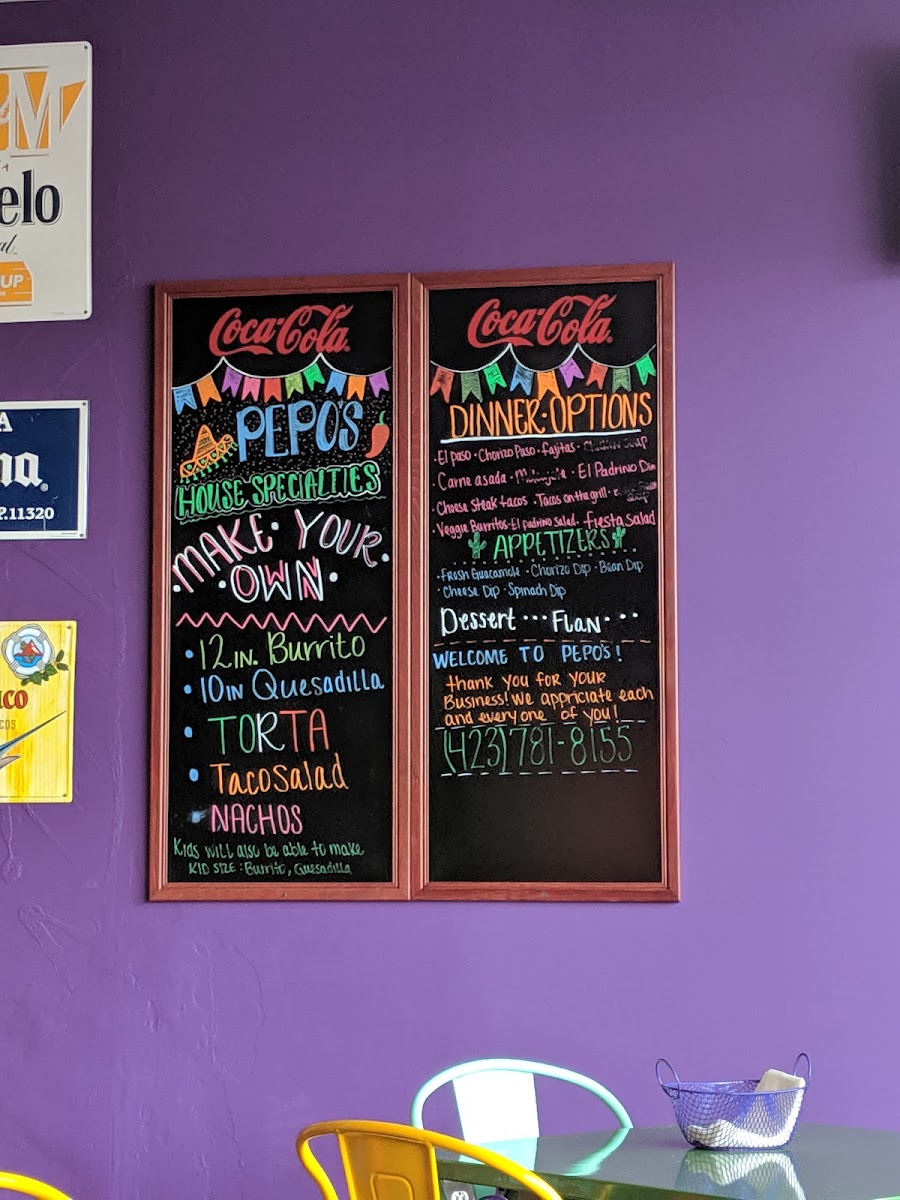 M
elo
UP
A
na
P.11320
ICO
COS
Coca-Cola
PEPO'S
HOUSE SPECIALTIES
MAKE YOUR
OWN
12IN. Burrito
10IN Quesadilla
TORTA
TacoSalad
NACHOS
Kids will also be able to make
KID SIZE: Burrito, Quesadilla
Coca-Cola
DINNER·OPTIONS
·El paso ·Chorizo Paso ·fajitas ·Chicken Soup
·Carne asada · ·El Padrino Din
·Cheese Steak tacos ·Tacos on the grill
·Veggie Burritos·El padrino Salad ·fiesta salad
APPETIZERS
·Fresh Guacamole ·Chorizo Dip ·Bean Dip
·Cheese Dip ·Spinach Dip
Dessert ··· Flan···
WELCOME TO PEPO'S!
thank you for your
Business! We appriciate each
and every one of you!
(423)781-8155